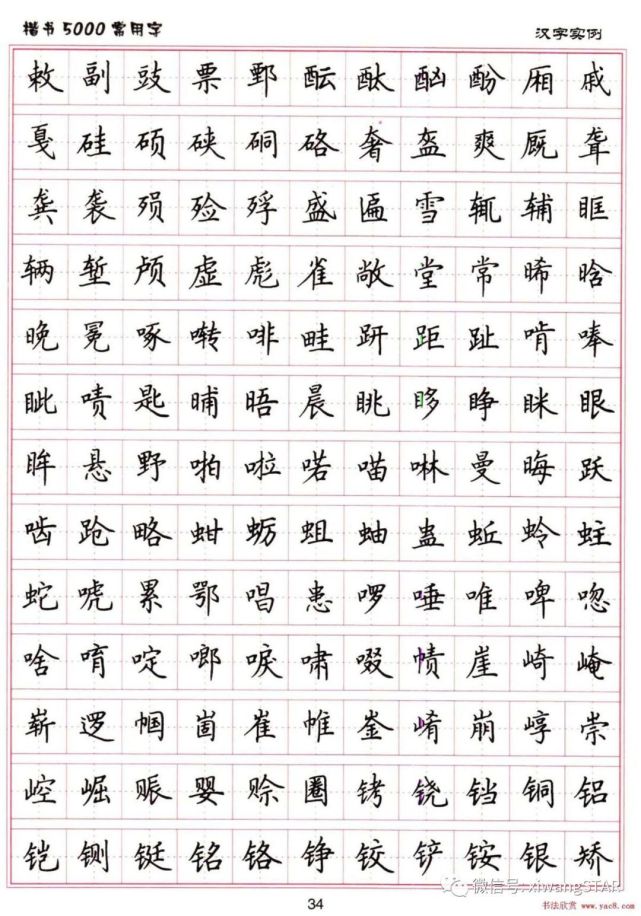 楷书5000常用字 汉字实例
敕副豉票鄄酝酞酗酚厢戚
戛硅硕硖硐硌奢盔爽厩聋
龚袭殒殓殍盛匾雪辄辅眶
辆堑颅虚彪雀敞堂常晞晗
晚冕啄啭啡畦趼距趾啃唪
眦啧匙晡晤晨眺眵睁眯眼
眸悬野啪啦喏喵啉曼晦跃
啮跄略蚶蛎蛆蚰蛊蚯蛉蛀
蛇唬累鄂唱患啰唾唯啤唿
啥唷啶啷唳啸啜帻崖崎崦
崭逻帼崮崔帷崟崤崩崞崇
崆崛赈婴赊圈铐铙铛铜铝
铠铡铤铭铬铮铰铲铵银矫
微信号: xiwangSTAR
34
书法欣赏 www.yac8.com